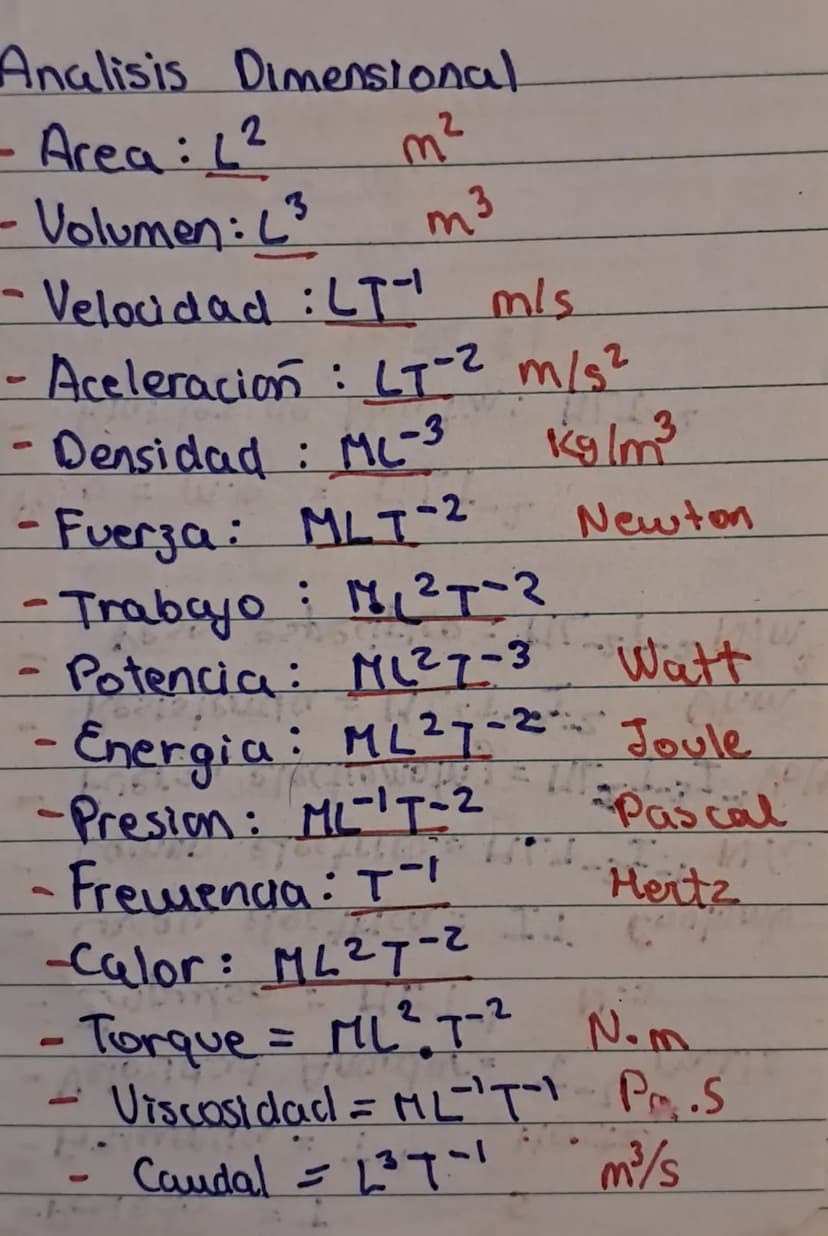 Analisis Dimensional
- Area : L² m²
- Volumen : L³ m³
- Velocidad : LT⁻¹ m/s
- Aceleración : LT⁻² m/s²
- Densidad : ML⁻³ Kg/m³
- Fuerza : MLT⁻² Newton
- Trabajo : ML²T⁻²
- Potencia : ML²T⁻³ Watt
- Energia : ML²T⁻² Joule
- Presion : ML⁻¹T⁻² Pascal
- Frecuencia : T⁻¹ Hertz
- Calor : ML²T⁻²
- Torque = ML².T⁻² N.m
- Viscosidad = ML⁻¹T⁻¹ Pa.s
- Caudal = L³T⁻¹ m³/s